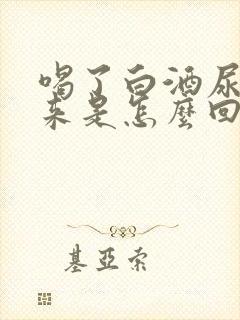 喝了白酒尿
来是怎麼回
基亞索